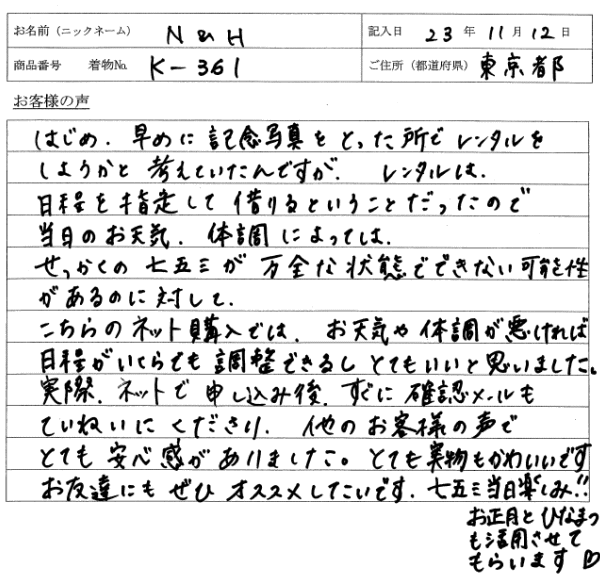 お名前(ニックネーム) N & H 記入日 23 年 11 月 12 日
商品番号 着物No. K-361 ご住所(都道府県) 東京都
お客様の声
はじめ、早めに記念写真をとった所でレンタルを
しようかと考えていたんですが、レンタルは、
日程を指定して借りるということだったので
当日のお天気、体調によっては、
せっかくの七五三が万全な状態でできない可能性
があるのに対して、
こちらのネット購入では、お天気や体調が悪ければ
日程がいくらでも調整できるしとてもいいと思いました。
実際、ネットで申し込み後、すぐに確認メールも
ていねいにくださり、他のお客様の声で
とても安心感がありました。とても実物もかわいいです
お友達にもぜひオススメしたいです。七五三当日楽しみ!!
お正月とひなまつ
も活用させて
もらいます♡